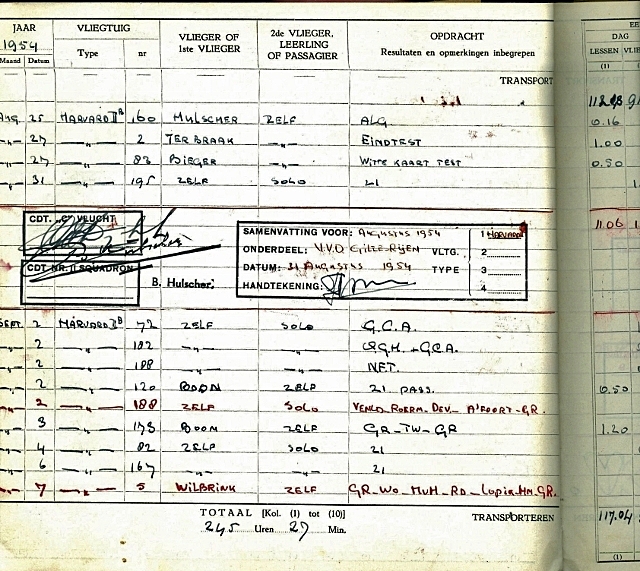 JAAR VLIEGTUIG VLIEGER OF 1ste VLIEGER 2de VLIEGER, LEERLING OF PASSAGIER OPDRACHT Resultaten en opmerkingen inbegrepen DAG
1954 Type nr LESSEN
Maand Datum (1)
TRANSPORT
25 HARVARD IIB 160 HULSCHER ZELF ALG 0.16
27 2 TER BRAAK EINDTEST 1.00
27 83 BIEGER WITTE KAART TEST 0.50
31 195 ZELF SOLO 21
CDT. "C" VLUCHT
CDT. NR. II SQUADRON
B. Hulscher.
SAMENVATTING VOOR: AUGUSTUS 1954 1 HARVARD
ONDERDEEL: V.V.O GILZE-RIJEN VLTG. 2
DATUM: 31 AUGUSTUS 1954 TYPE 3
HANDTEKENING: 4
11.06
SEPT. 2 HARVARD IIB 72 ZELF SOLO G.C.A.
2 182 + GCA.
2 188 NFT.
2 120 BOOM ZELF 21 PASS. 0.50
2 188 ZELF SOLO VENLO_ROERM._DEV._A'FOORT_GR.
3 BOOM ZELF GR_TW_GR 1.20
4 82 ZELF SOLO 21
6 167 21
7 5 WILBRINK ZELF GR_WO_MUM_RD_LOPIK_HM_GR.
TOTAAL [Kol. (1) tot (10)]
245 Uren 27 Min.
TRANSPORTEREN 117.04
(1)